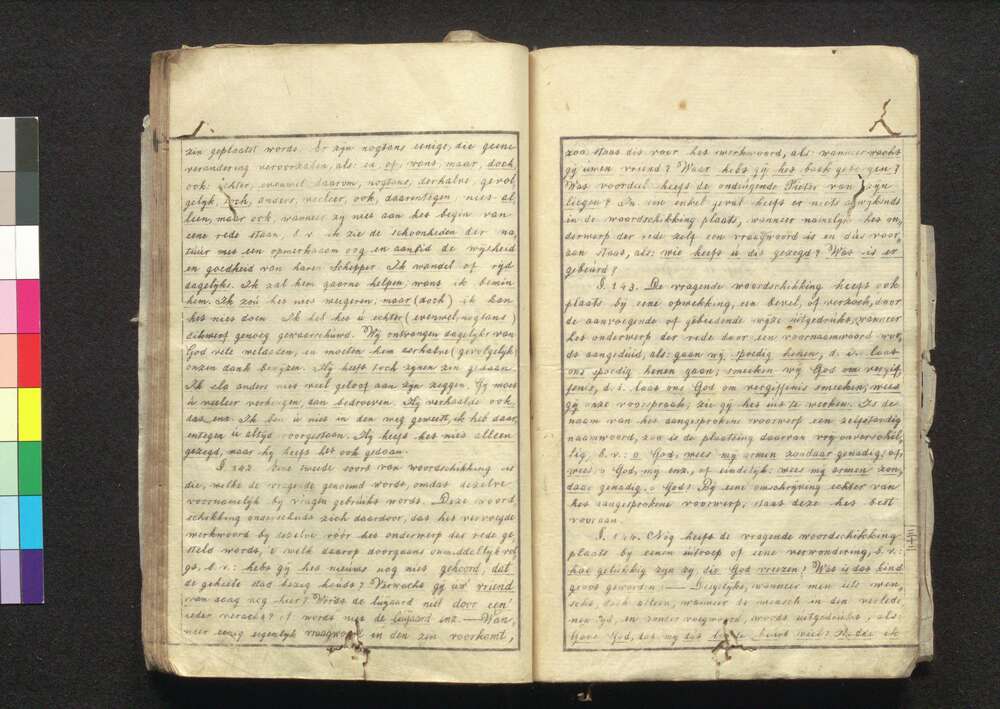 zin geplaatst wordt. Er zijn nogtans eenige, die geene
verandering veroorzaken, als: en, of, want, maar, doch
ook: echter, evenwel daarom, nogtans, derhalve, gevol
gelijk, toch, anders, veeleer, ook, daarentegen niet al
leen, maar ook, wanneer zij niet aan het begin van
eene rede staan, b. v. ik zie de schoonheden der na
tuur met een opmerkzaam oog en aanbid de wijsheid
en goedheid van haren Schepper. Ik wandel of rijd
dagelijks. Ik zal hem gaarne helpen, want ik bemin
hem. Ik zoú het niet weigeren, maar (doch) ik kan
het niet doen. Ik heb het ú echter (evenwel, nogtans)
dikwerf genoeg gewaarschúwd. Wij ontvangen dagelijks van
God vele weldaden, en moeten hem derhalve (gevolgelijk
onzen dank bewijzen. Hij heeft toch zijnen zin gedaan.
Ik sla anders niet veel geloof aan zijn zeggen. Gij moet
ú veeleer verheugen dan bedroeven. Hij verhaalde ook
dat, enz. Ik ben ú niet in den weg geweest, ik heb daar
entegen ú altijd voorgestaan. Hij heeft het niet alleen
gezegd, maar hij heeft het ook gedaan.
§. 142. Eene tweede soort van woordschikking is
die, welke de vragende genoemd wordt, omdat dezelve
voornamelijk bij vragen gebruikt wordt. Deze woord
schikking onderscheidt zich daardoor, dat het vervoegde
werkwoord bij dezelve vóór het onderwerp der rede ge,
steld wordt, 't welk daarop doorgaans onmiddellijk vol
gt, b. v.: hebt gij het nieuws nog niet gehoord, dat
de geheele stad bezig houdt? Verwacht gij uw' vriend
van daag nog hier? Wordt de luijaard niet door een'
ieder veracht? of wordt niet de luijaard enz. — Wan,
neer eenig eigenlijk vraagwoord in den zin voorkomt,
zoo staat dit voor het werkwoord, als: wanneer wacht
gij uwen vriend? Waar hebt gij het boek gekregen?
Wat voordeel heeft de ondeugende Pieter van zijn
liegen? In een enkel geval heeft er niets afwijkends
in de woordschikking plaats, wanneer namelijk het on,
derwerp der rede zelf een vraagwoord is en dus voor,
aan staat, als: wie heeft ú dit gezegd? Wat is er
gebeurd?
§. 143. De vragende woordschikking heeft ook
plaats bij eene opwekking, een bevel, of verzoek, door
de aanvoegende of gebiedende wijze uitgedrukt, wanneer
het onderwerp der rede door een voornaamwoord wor,
dt aangeduid, als: gaan wij spoedig henen, d. i. laat
ons spoedig henen gaan; smeeken wij God om vergif,
fenis, d. i. laat ons God om vergiffenis smeeken; wees
gij onze voorspraak; zie gij het uit te werken. Is de
naam van het aangesprokene voorwerp een zelfstandig
naamwoord, zoo is de plaatsing daarvan vrij onverschil,
lig, b. v.: o God, wees mij armen zondaar genadig, of,
wees o God, mij enz., of eindelijk: wees mij armen zon,
daar genadig, o God! Bij eene omschrijving echter van
het aangesprokene voorwerp, staat deze het best
vooraan.
§. 144. Nóg heeft de vragende woordschikking
plaats bij eenen uitroep of eene verwondering, b. v.:
hoe gelukkig zijn zij, die God vreezen! Wat is das kind
groot geworden! — Desgelijks, wanneer men iets wen,
scht, doch alleen, wanneer de wensch in den verlede
nen tijd, en zonder voegwoord, wordt uitgedrukt, als:
Gave God, dat mij dit te beurt viel! Hadde ik